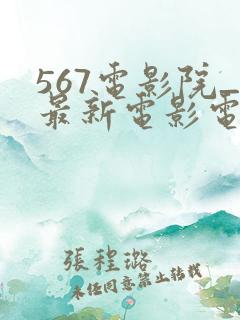 567电影院_
最新电影电
張程璐
未经同意禁止转载